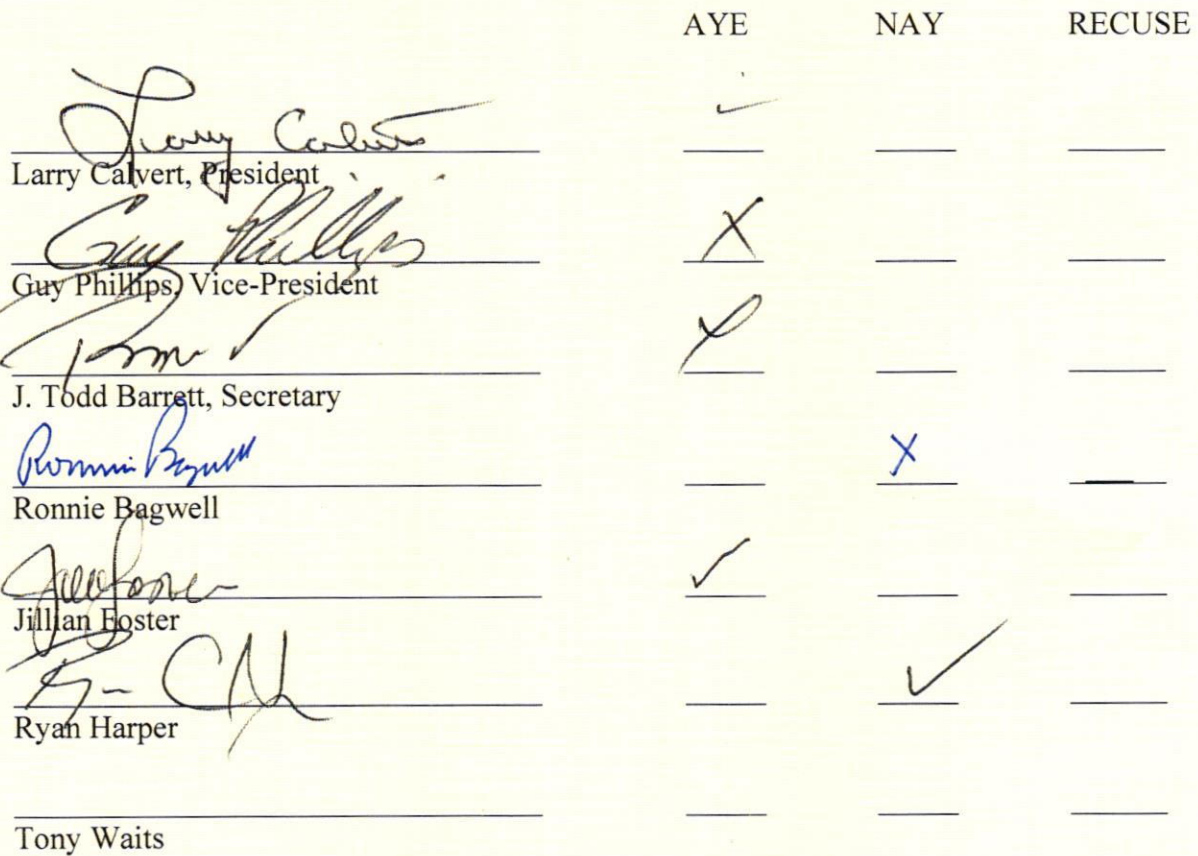 AYE NAY RECUSE
Larry Calvert ✓
Larry Calvert, President
Guy Phillips X
Guy Phillips, Vice-President
X
J. Todd Barrett, Secretary
Ronnie Bagwell X
Ronnie Bagwell
✓
Jillian Foster
✓
Ryan Harper
Tony Waits